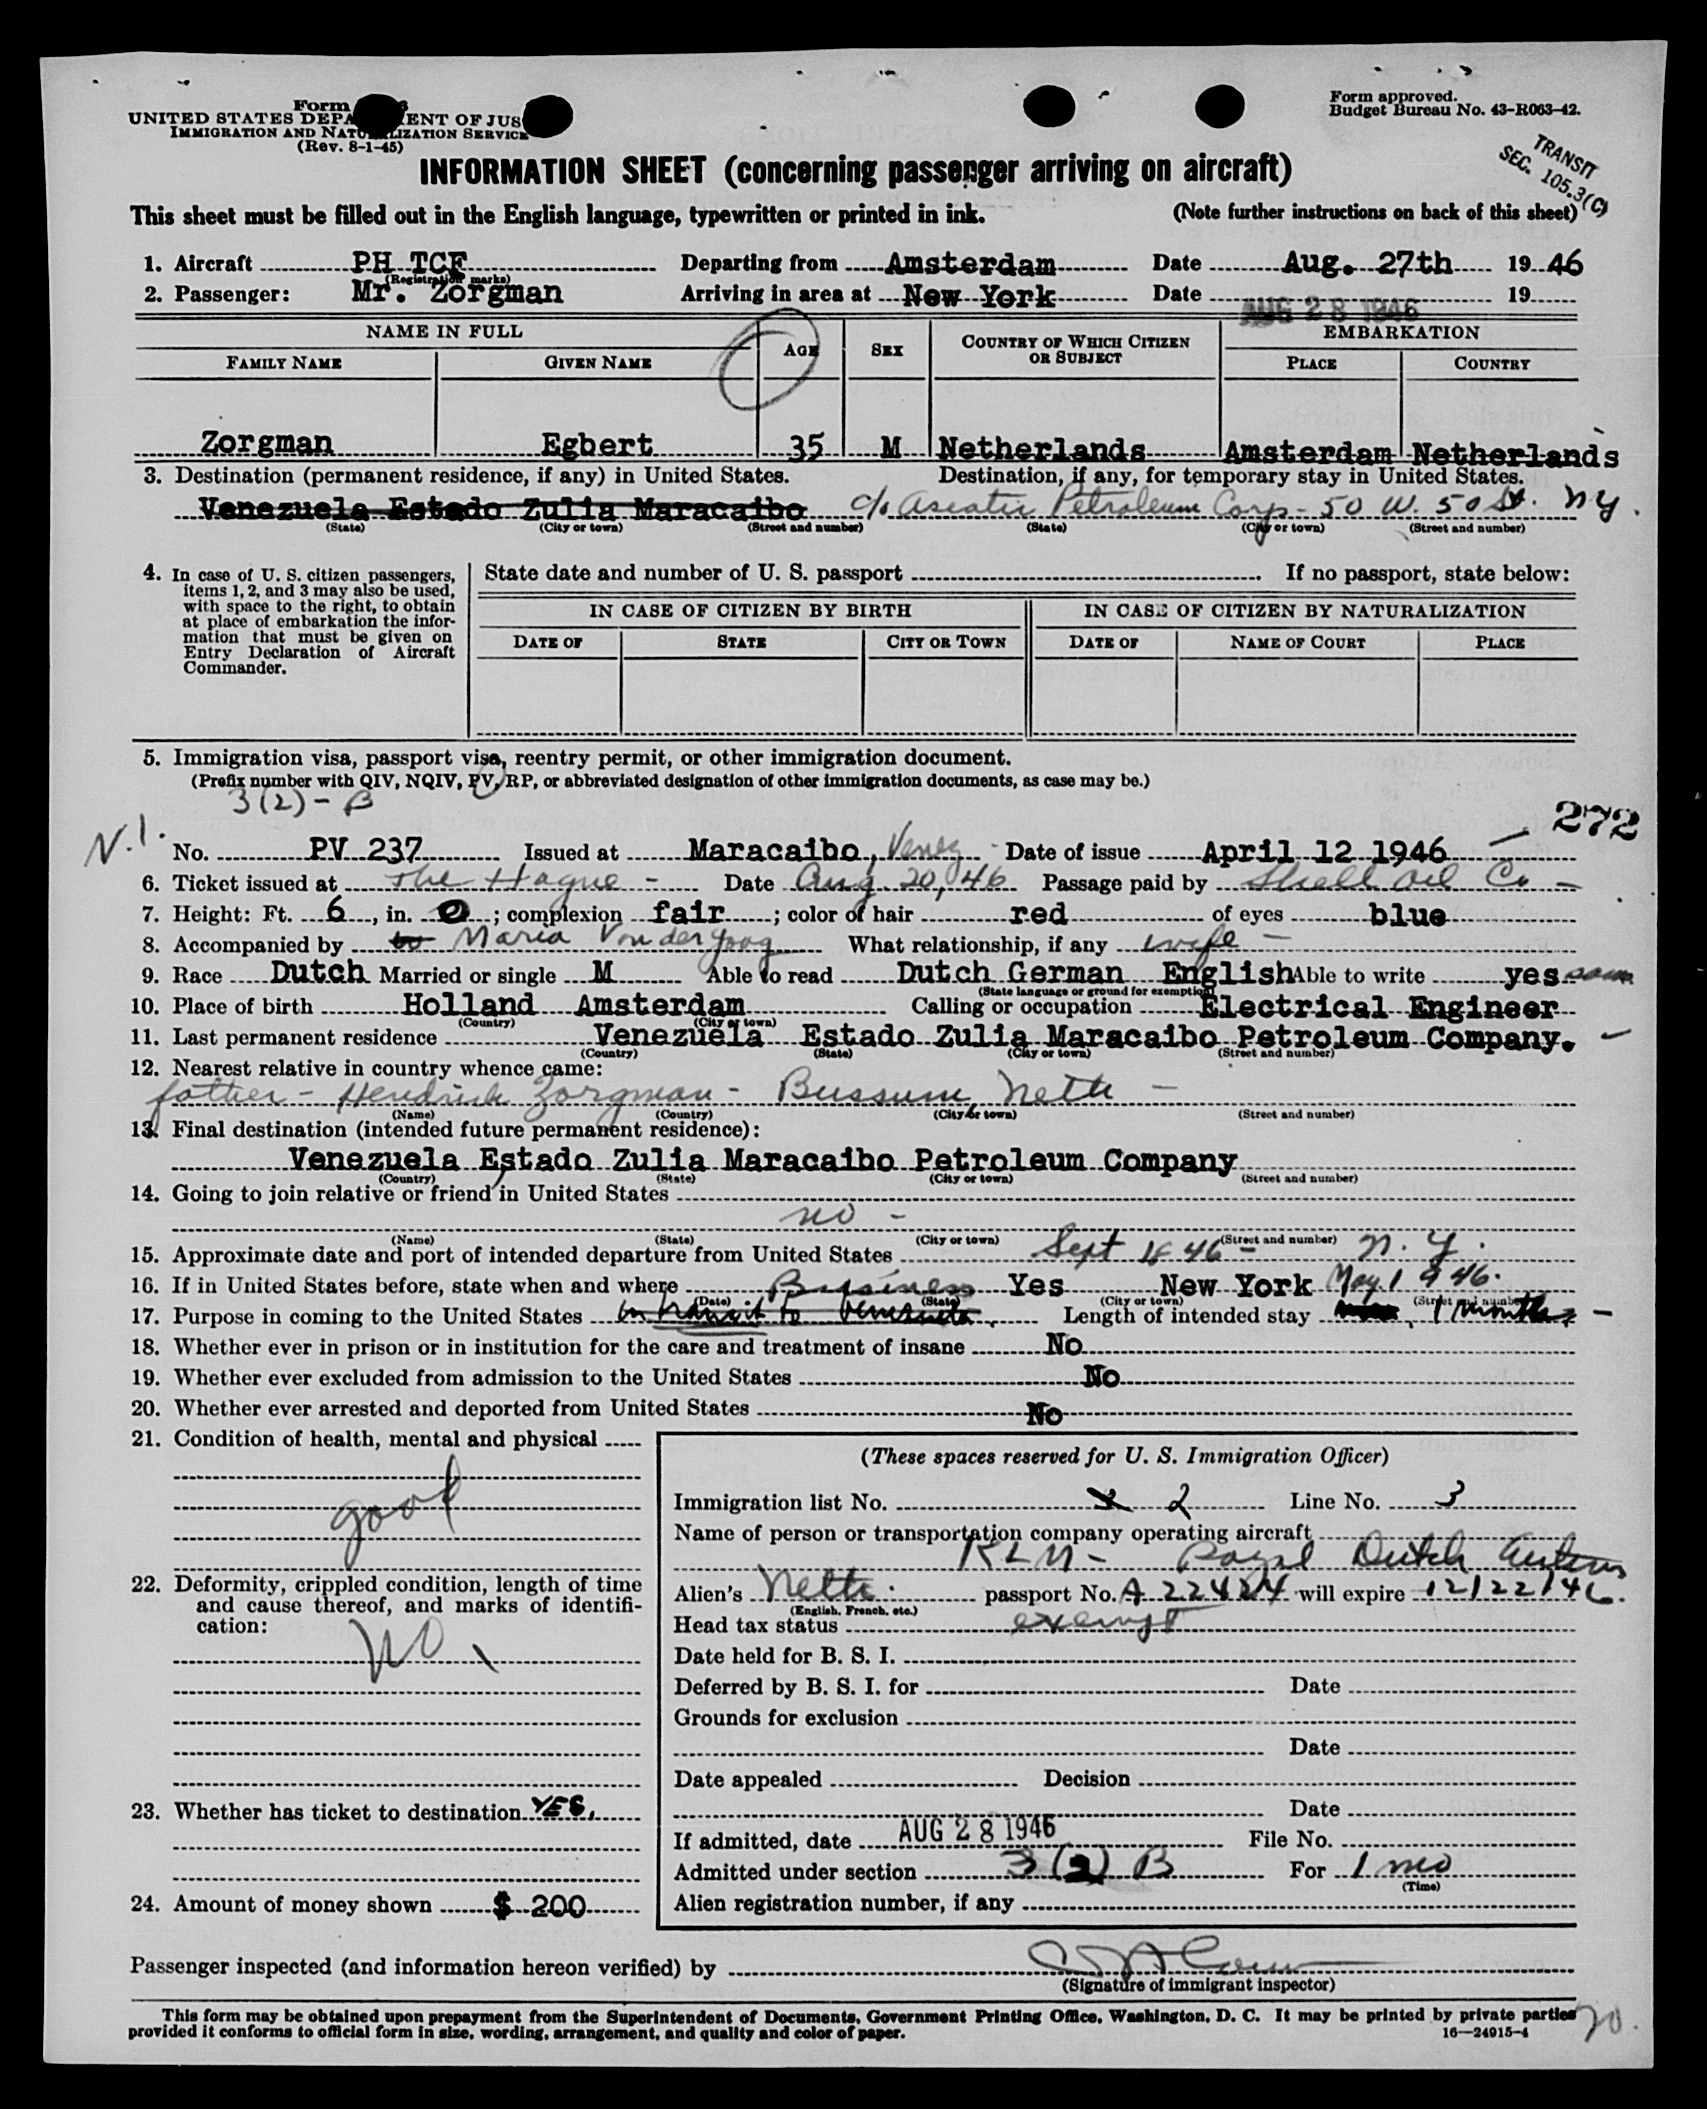 Form
UNITED STATES DEPA ENT OF JUS
IMMIGRATION AND NATU LIZATION SERVICE
(Rev. 8-1-45)
Form approved.
Budget Bureau No. 43-R063-42.
TRANSIT
SEC. 105.3(C)
INFORMATION SHEET (concerning passenger arriving on aircraft)
This sheet must be filled out in the English language, typewritten or printed in ink. (Note further instructions on back of this sheet)
1. Aircraft PH TCF Departing from Amsterdam Date Aug. 27th 19 46
(Registration marks)
2. Passenger: Mr. Zorgman Arriving in area at New York Date AUG 28 1946 19
NAME IN FULL AGE SEX COUNTRY OF WHICH CITIZEN OR SUBJECT EMBARKATION
FAMILY NAME GIVEN NAME PLACE COUNTRY
Zorgman Egbert 35 M Netherlands Amsterdam Netherlands
3. Destination (permanent residence, if any) in United States. Destination, if any, for temporary stay in United States.
Venezuela Estado Zulia Maracaibo c/o Asiatic Petroleum Corp - 50 W. 50 St. NY.
(State) (City or town) (Street and number) (State) (City or town) (Street and number)
4. In case of U. S. citizen passengers, items 1, 2, and 3 may also be used, with space to the right, to obtain at place of embarkation the information that must be given on Entry Declaration of Aircraft Commander.
State date and number of U. S. passport If no passport, state below:
IN CASE OF CITIZEN BY BIRTH IN CASE OF CITIZEN BY NATURALIZATION
DATE OF STATE CITY OR TOWN DATE OF NAME OF COURT PLACE
5. Immigration visa, passport visa, reentry permit, or other immigration document.
(Prefix number with QIV, NQIV, PV, RP, or abbreviated designation of other immigration documents, as case may be.)
3(2)-B
272
N.I.
No. PV 237 Issued at Maracaibo, Venez Date of issue April 12 1946
6. Ticket issued at The Hague - Date Aug 20, 46 Passage paid by Shell Oil Co -
7. Height: Ft. 6, in. 0; complexion fair; color of hair red of eyes blue
8. Accompanied by Maria What relationship, if any wife -
9. Race Dutch Married or single M Able to read Dutch German English Able to write yes same
(State language or ground for exemption)
10. Place of birth Holland Amsterdam Calling or occupation Electrical Engineer
(Country) (City or town)
11. Last permanent residence Venezuela Estado Zulia Maracaibo Petroleum Company.
(Country) (State) (City or town) (Street and number)
12. Nearest relative in country whence came:
father - Hendrik Zorgman - Bussum, Neth -
(Name) (Country) (City or town) (Street and number)
13. Final destination (intended future permanent residence):
Venezuela Estado Zulia Maracaibo Petroleum Company
(Country) (State) (City or town) (Street and number)
14. Going to join relative or friend in United States
no -
(Name) (State) (City or town) (Street and number)
15. Approximate date and port of intended departure from United States Sept 18 46 - N.Y.
16. If in United States before, state when and where Yes New York May 1946.
(Date) (State) (City or town) (Street and number)
17. Purpose in coming to the United States Business in transit to Venezuela Length of intended stay 1 month -
18. Whether ever in prison or in institution for the care and treatment of insane No
19. Whether ever excluded from admission to the United States No
20. Whether ever arrested and deported from United States No
21. Condition of health, mental and physical
good
22. Deformity, crippled condition, length of time and cause thereof, and marks of identification:
NO
23. Whether has ticket to destination YES.
24. Amount of money shown $ 200
(These spaces reserved for U. S. Immigration Officer)
Immigration list No. 2 Line No. 3
Name of person or transportation company operating aircraft
KLM - Royal Dutch Airlines
Alien's Neth. passport No. A 22424 will expire 12/22/46.
(English, French, etc.)
Head tax status exempt
Date held for B. S. I.
Deferred by B. S. I. for Date
Grounds for exclusion
Date
Date appealed Decision
Date
If admitted, date AUG 28 1946 File No.
Admitted under section 3(2) B For 1 mo
(Time)
Alien registration number, if any
Passenger inspected (and information hereon verified) by
(Signature of immigrant inspector)
This form may be obtained upon prepayment from the Superintendent of Documents, Government Printing Office, Washington, D. C. It may be printed by private parties
provided it conforms to official form in size, wording, arrangement, and quality and color of paper. 16—24915-4